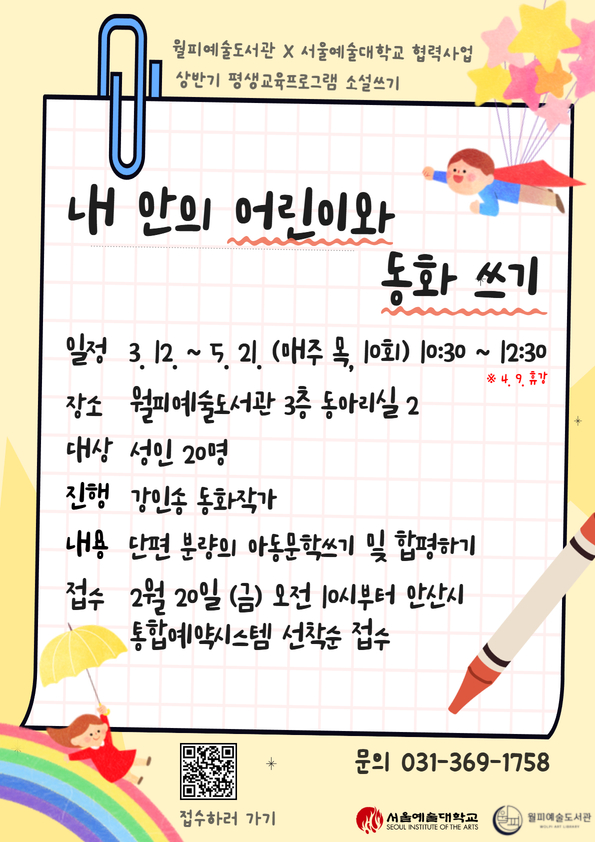 월피예술도서관 X 서울예술대학교 협력사업
상반기 평생교육프로그램 소설쓰기
내 안의 어린이와
동화 쓰기
일정 3. 12. ~ 5. 21. (매주 목, 10회) 10:30 ~ 12:30
※ 4. 9. 휴강
장소 월피예술도서관 3층 동아리실 2
대상 성인 20명
진행 강인송 동화작가
내용 단편 분량의 아동문학쓰기 및 합평하기
접수 2월 20일 (금) 오전 10시부터 안산시
통합예약시스템 선착순 접수
문의 031-369-1758
접수하러 가기
서울예술대학교
SEOUL INSTITUTE OF THE ARTS
월피예술도서관
WOLPI ART LIBRARY